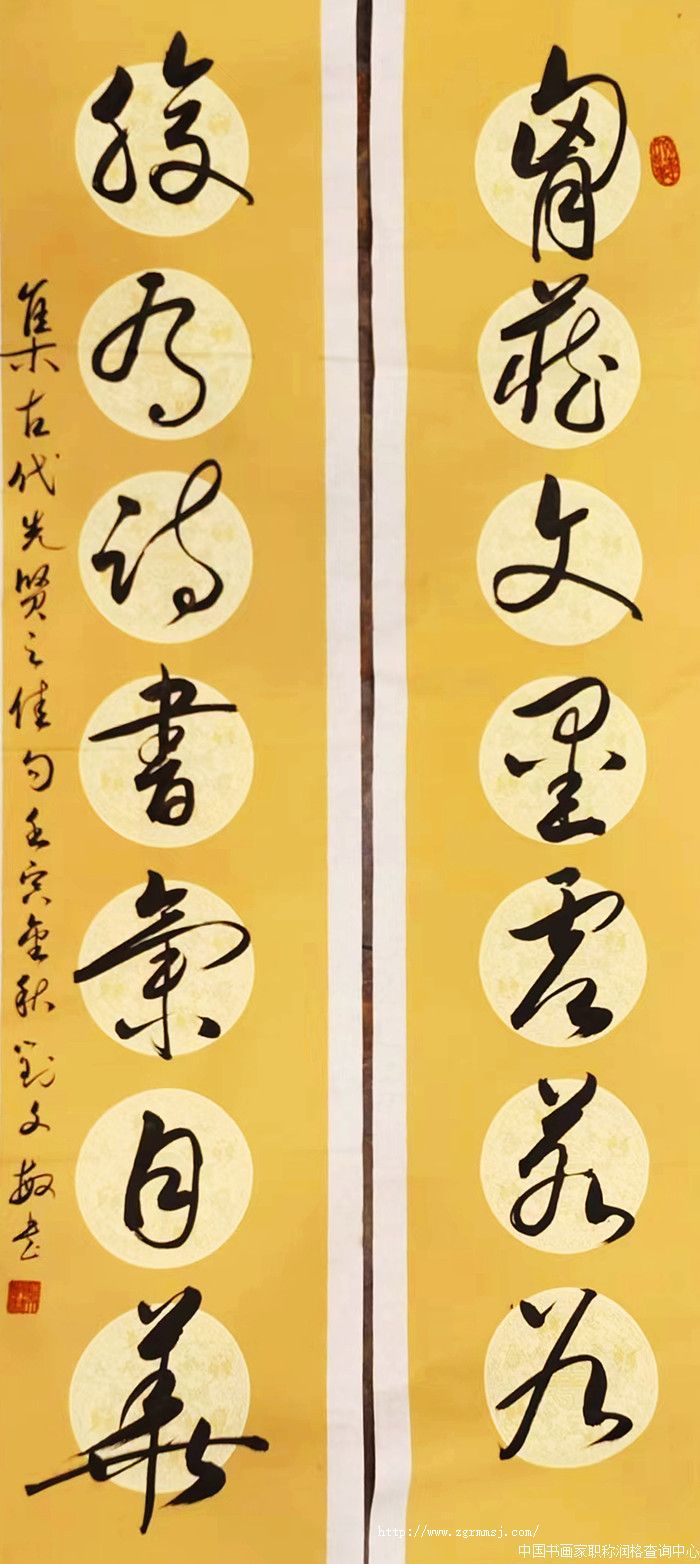 胷藏文墨虛若谷
腹有詩書氣自華
集古代先賢之佳句壬寅金秋劉文敏書
http://www.zgrmmsj.com/
中国书画家职称润格查询中心